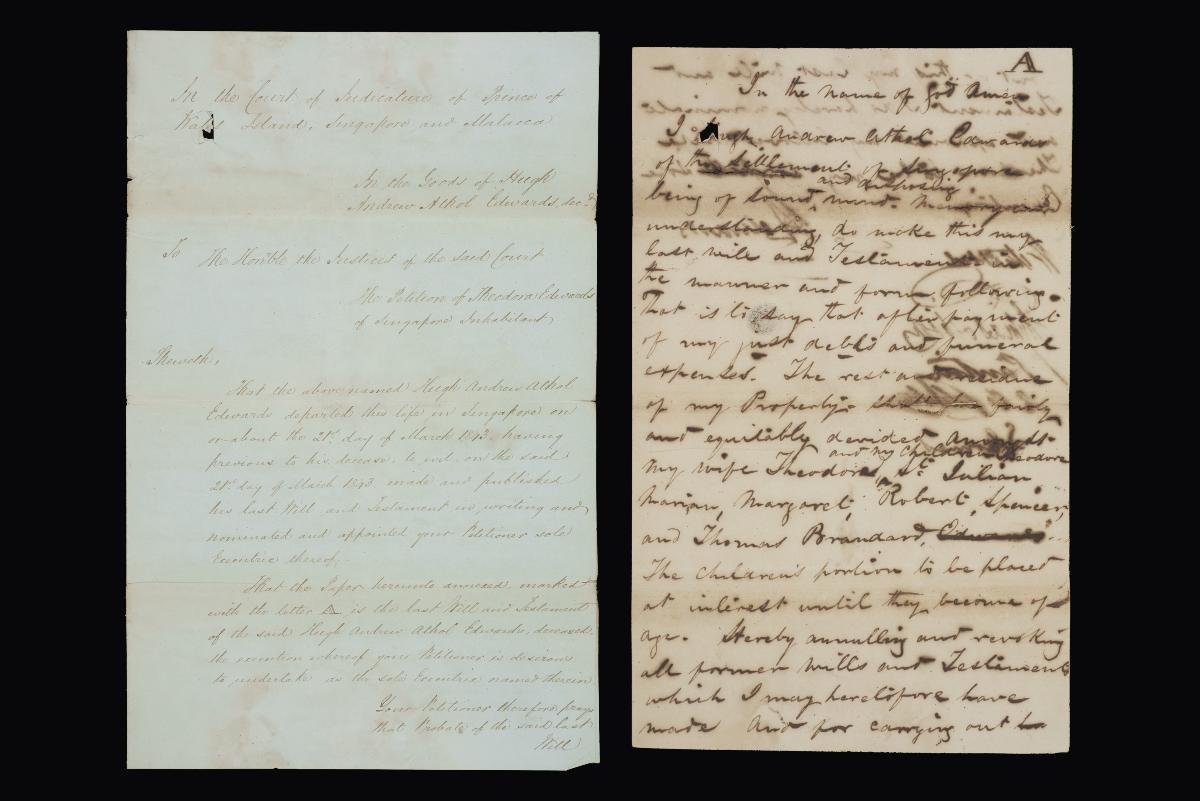 In the Court of Judicature of Prince of
Wales Island, Singapore and Malacca
In the Goods of Hugh
Andrew Athol Edwards, decd.
To
The Honble the Justices of the said Court
The Petition of Theodora Edwards
of Singapore Inhabitant
Sheweth,
That the above named Hugh Andrew Athol
Edwards departed this life in Singapore on
or about the 21st. day of March 1843. having
previous to his decease, to wit, on the said
21st day of March 1843. made and published
his last Will and Testament in writing and
nominated and appointed your Petitioner sole
Executrix thereof.
That the Paper hereunto annexed, marked
with the letter A is the last Will and Testament
of the said Hugh Andrew Athol Edwards, deceased,
the execution whereof your Petitioner is desirous
to undertake as the sole Executrix named therein
Your Petitioner therefore prays
that Probate of the said last
Will
A
In the name of God Amen
I Hugh Andrew Athol Edwards
of the Settlement of Singapore
being of sound and disposing mind. Memory and
understanding, do make this my
last will and Testament in
the manner and form following.
That is to say that after payment
of my just debts and funeral
expenses. The rest and residue
of my Property. shall be fairly
and equitably devided amongst
my wife Theodora, and my children Theodore St. Julian,
Marian, Margaret, Robert, Spencer,
and Thomas Brandard, Edwards.
The Children's portion to be placed
at interest until they become of
age. Hereby annulling and revoking
all former wills and Testaments
which I may heretofore have
made And for carrying out